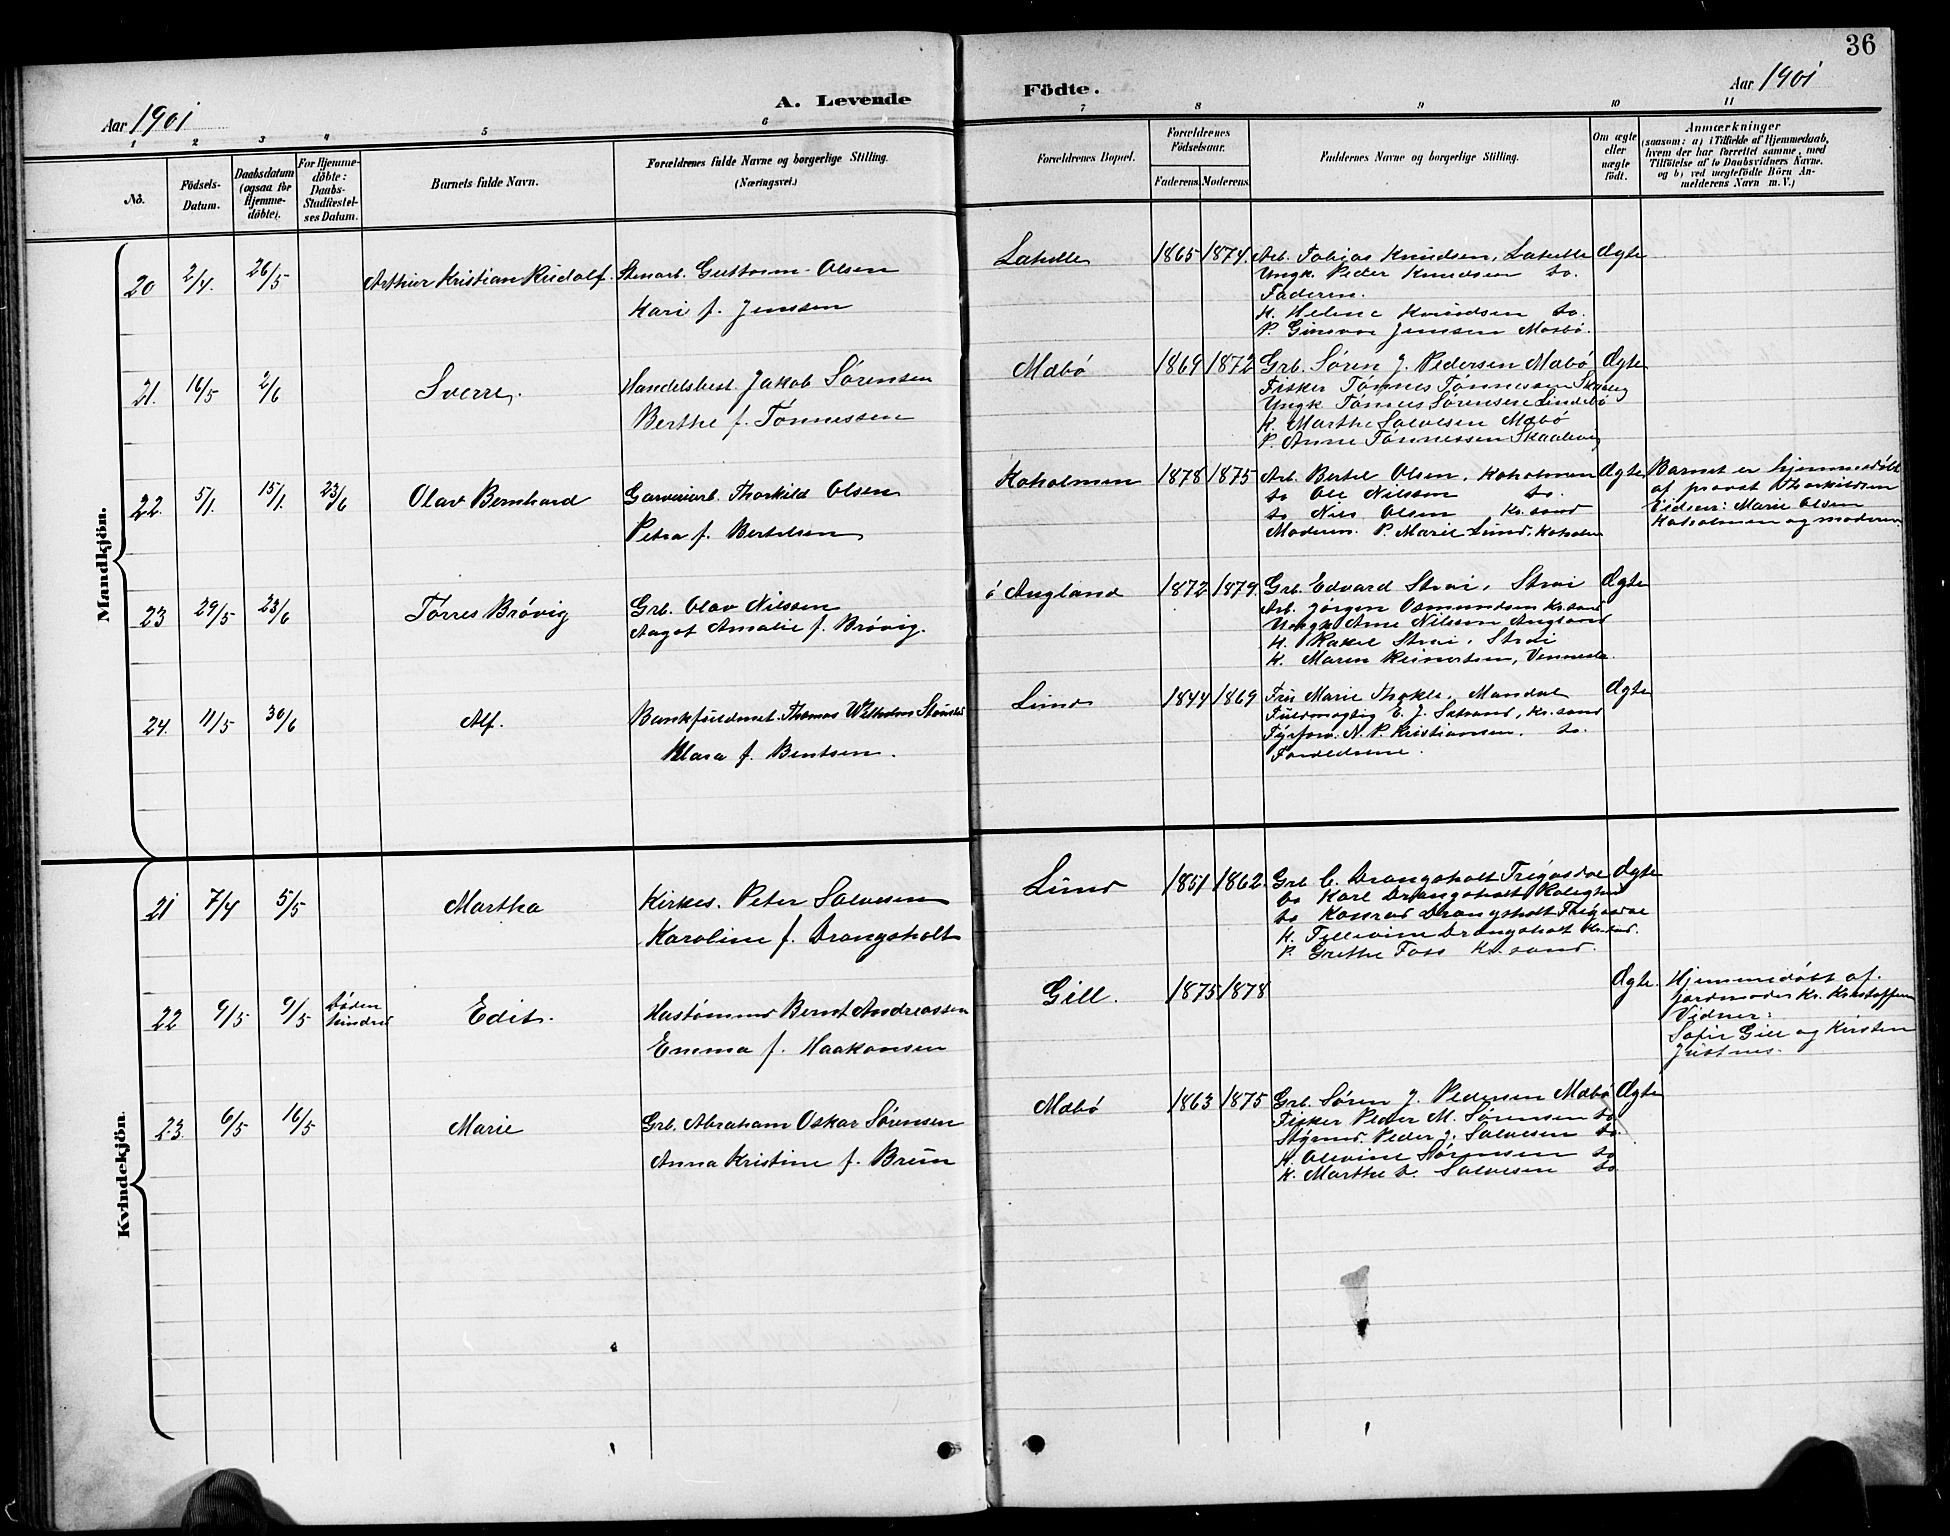 36
Aar 1901
A. Levende
Födte.
Aar 1901
1 2 3 4 5 6 7 8 9 10 11
No.
Födsels-
Datum.
Daabsdatum
(ogsaa for
Hjemme-
döbte).
For Hjemme-
döbte:
Daabs-
Stadfestel-
ses Datum.
Barnets fulde Navn.
Forældrenes fulde Navne og borgerlige Stilling.
(Næringsvei.)
Forældrenes Bopæl.
Forældrenes
Födselsaar.
Faderens. Moderens.
Faddernes Navne og borgerlige Stilling.
Om ægte
eller
uægte
födt.
Anmærkninger
(saasom: a) i Tilfælde af Hjemmedaab,
hvem der har forrettet samme, med
Tilföielse af to Daabsvidners Navne.
og b) ved uægtefödte Börn An-
melderens Navn m. V.)
Mandkjön.
20 2/4. 26/5 Arthur Kristian Rudolf. Stenarb. Guttorm Olsen
Kari f. Jenssen
Lahelle 1865 1874. Arb. Tobias Knudsen, Lahelle Ægte
Ungk. Peder Knudsen do.
Faderen.
K. Helene Knudsen do.
P. Ginevra Jenssen Mæbø.
21. 16/5 2/6 Sverre. Handelsbest. Jakob Sørensen
Berthe f. Tønnessen
Mæbø 1869 1872 Grb. Søren J. Pedersen Mæbø Ægte
Fisker Tønnes Tønnessen
Ungk Tønnes Sørensen Lindebø
K. Marthe Salvesen Mæbø
P. Anne Tønnessen
22. 5/1. 15/1. 23/6 Olav Bernhard Garveriarb. Thorkild Olsen
Petra f. Bertelsen
Koholmen 1878 1875 Arb. Bertel Olsen, Koholmen Ægte
do Ole Nilssen do.
do Nils Olsen Kr.sand
Moderen. P. Marie Lund, Koholm
Barnet er hjemmedøbt
af provst Thorkildsen
Vidner: Marie Olsen
Koholmen og moderen
23 29/5 23/6 Tørres Brøvig Grb. Olav Nilssen
Aagot Amalie f. Brøvig.
ø Augland 1872 1879. Grb. Edvard Strai, Strai Ægte
Arb. Jørgen Osmundsen Kr.sand
Ungk. Arne Nilssen Augland
K. Rakel Strai, Strai
K. Maren Reinertsen, Vennesla.
24. 11/5 30/6 Alf. Bankfuldmæt. Thomas Wilhelm
Klara f. Bentsen.
Lund 1844 1869 Fru Marie Mandal Ægte
Fuldmægtig E. J. Kr.sand
Fyrforv. N. P. Kristiansen, do.
Forældrene.
Kvindekjön.
21 7/4 5/5 Martha Kirkes. Peter Salvesen
Karoline f. Drangsholt
Lund 1851 1862. Grb C. Drangsholt Ægte
do Karl Drangsholt
do Konrad Drangsholt
K. Tellevine Drangsholt Kr.sand.
P. Grethe Foss Kr.sand.
22 9/5 9/5 døden
hindret Edit. Hustømmer Bernt Andreassen
Emma f. Haakonsen
Gill. 1875 1878 Ægte.
Hjemmedøbt af
jordmoder Kr. Kristoffersen
Vidner:
Sofie Gill og Kirsten
Justnes.
23. 6/5 16/5 Marie Grb. Abraham Oskar Sørensen
Anna Kristine f. Brun
Mæbø 1863 1875 Grb. Søren J. Pedersen Mæbø Ægte
Fisker Peder M. Sørensen do
Styrmd. Peder J. Salvesen do.
K. Olevine Sørensen do
K. Marthe S. Salvesen do